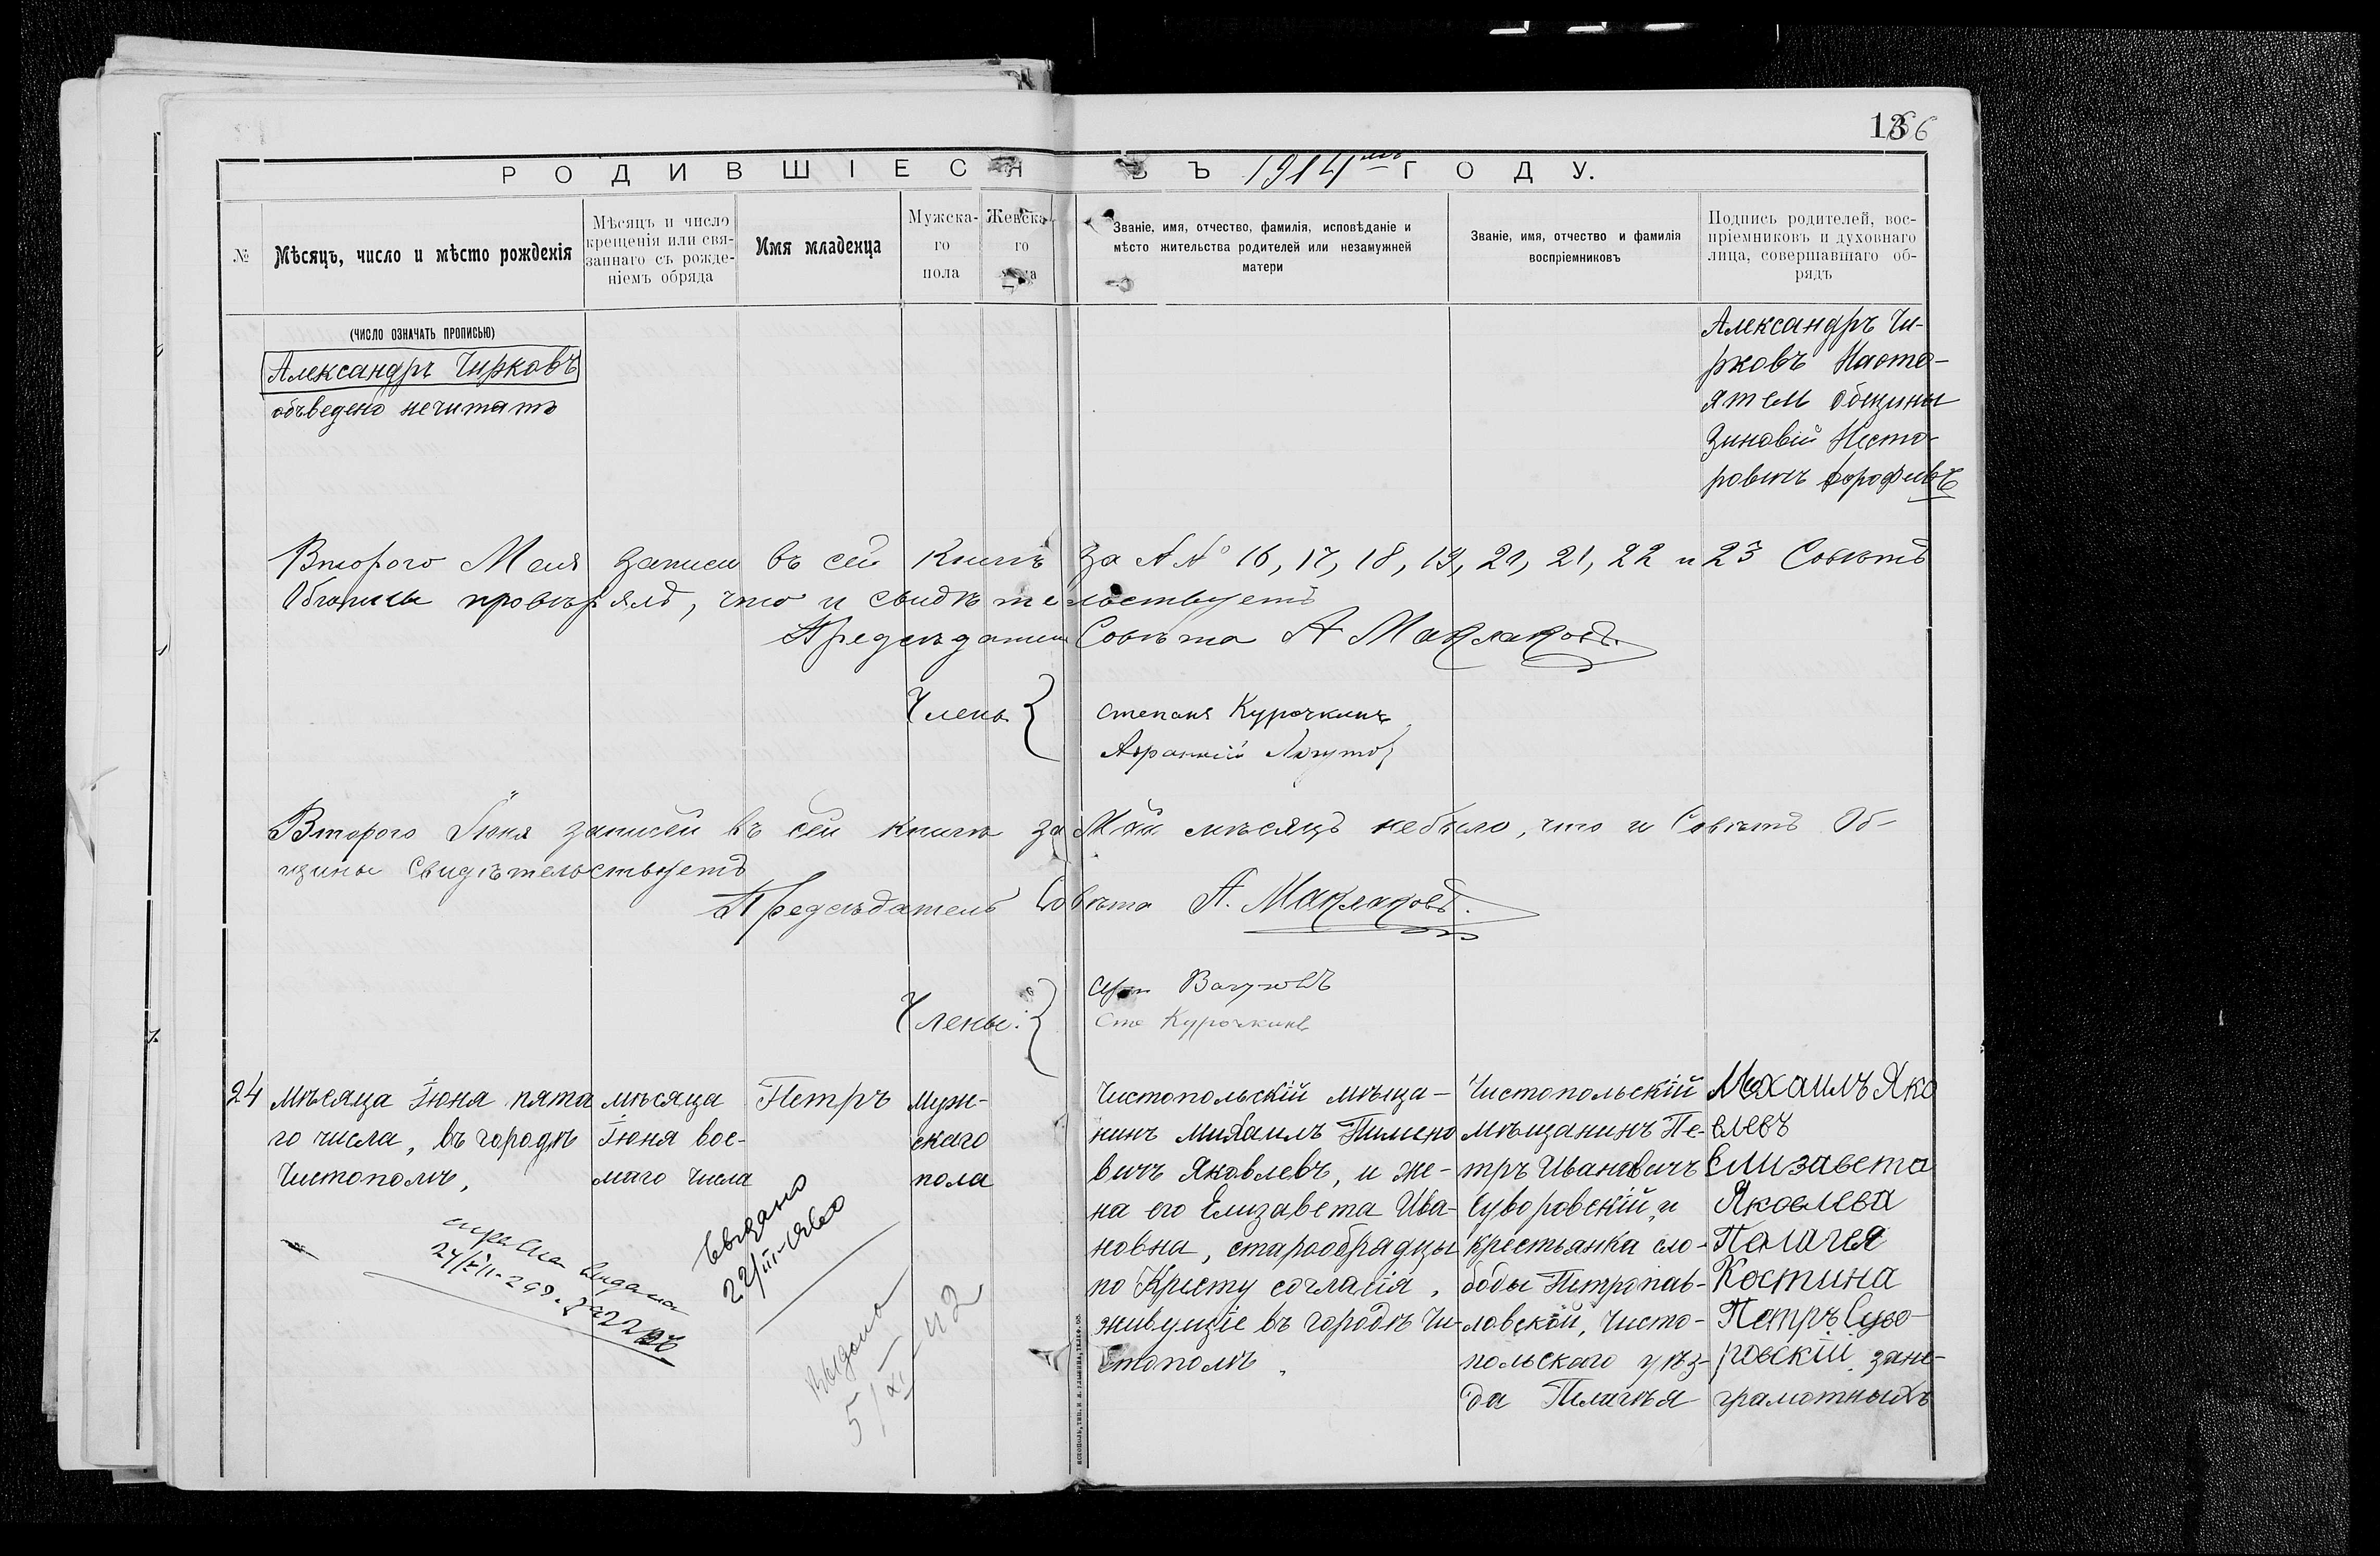 13 66
РОДИВШІЕСЯ ВЪ 1914мъ ГОДУ.
№
Мѣсяцъ, число и мѣсто рожденія
Мѣсяцъ и число
крещенія или свя-
заннаго съ рожде-
ніемъ обряда
Имя младенца
Мужска-
го
пола
Женска
го
Званіе, имя, отчество, фамилія, исповѣданіе и
мѣсто жительства родителей или незамужней
матери
Званіе, имя, отчество и фамилія
воспріемниковъ
Подпись родителей, вос-
пріемниковъ и духовнаго
лица, совершавшаго об-
рядъ
(ЧИСЛО ОЗНАЧАТЬ ПРОПИСЬЮ)
Александръ Чирковъ
объведено нечитать
Александръ Чи-
рковъ Насто-
ятель Общины
Зиновій Несто-
ровичъ
Второго Мая записи въ сей книгѣ за №№ 16, 17, 18, 19, 21, 21, 22 и 23 Совѣтъ
Общины провѣрялъ, что и свидѣтельствуетъ
Предсѣдатель Совѣта А Маклаковъ.
Члены
Степанъ Курочкинъ
Второго Іюня записей въ сей книгѣ за Май мѣсяцъ небыло, что и Совѣтъ Об-
щины свидѣтельствуетъ
Предсѣдатель Совѣта А. Маклаковъ.
Члены:
Сте Курочкинъ
24
мѣсяца Іюня пята
го числа, въ городѣ
Чистополѣ,
мѣсяца
Іюня вос-
маго числа
Петръ
муж-
скаго
пола
Чистопольскій мѣща-
нинъ Михаилъ Пимено
вичъ Яковлевъ, и же-
на его Елизавета Ива-
новна, старообрядцы
по Кресту согласія,
живущіе въ городѣ Чи-
стополѣ.
Чистопольскій
мѣщанинъ Пе-
тръ Ивановичъ
Суворовскій, и
крестьянка сло-
боды Петропав-
ловской, Чисто-
польскаго уѣз-
да Пелагѣя
Михаилъ Яко
влевъ
Елизавета
Яковлева
Палагея
Костина
Петръ Суво-
ровскій за не-
грамотныхъ
справка выдана
выдано
22/III-
выдано
5/XI-42